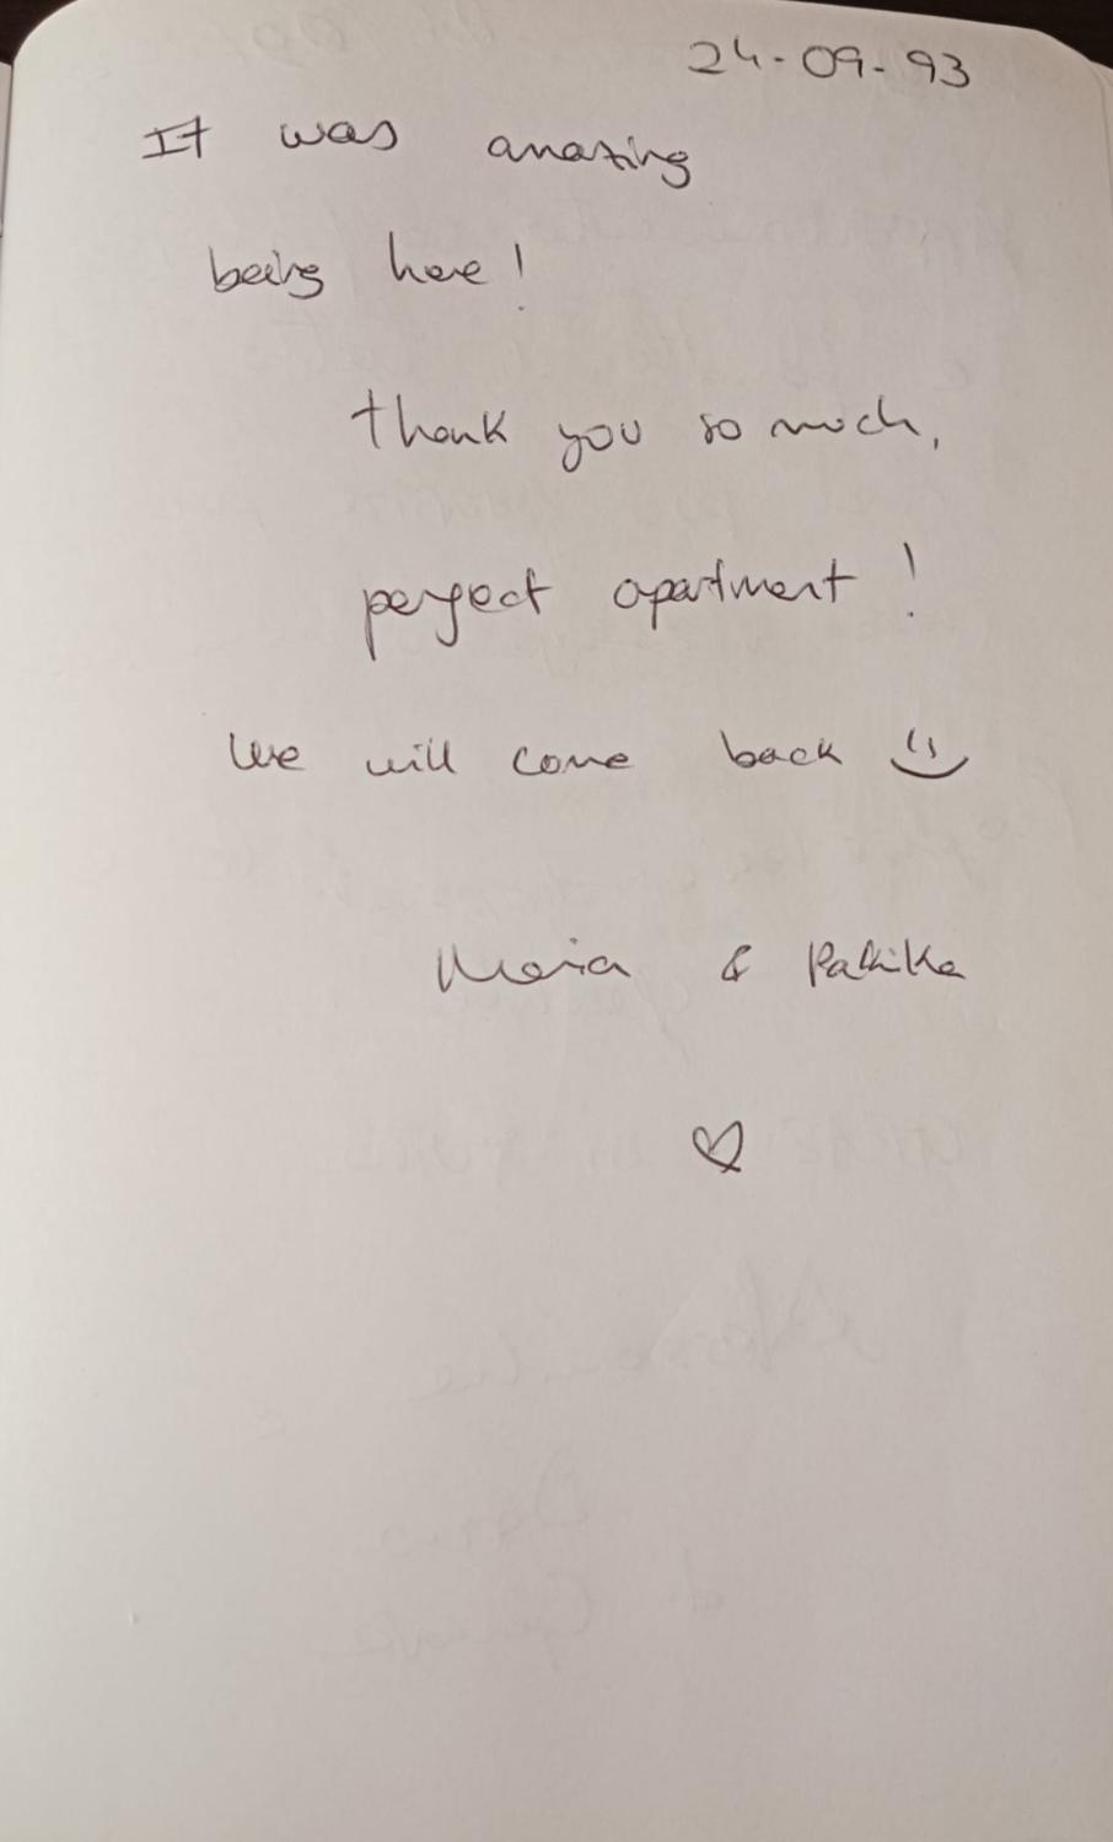 24-09-93
It was amazing
being here!
thank you so much,
perfect apartment!
We will come back :)
Maria &
♡